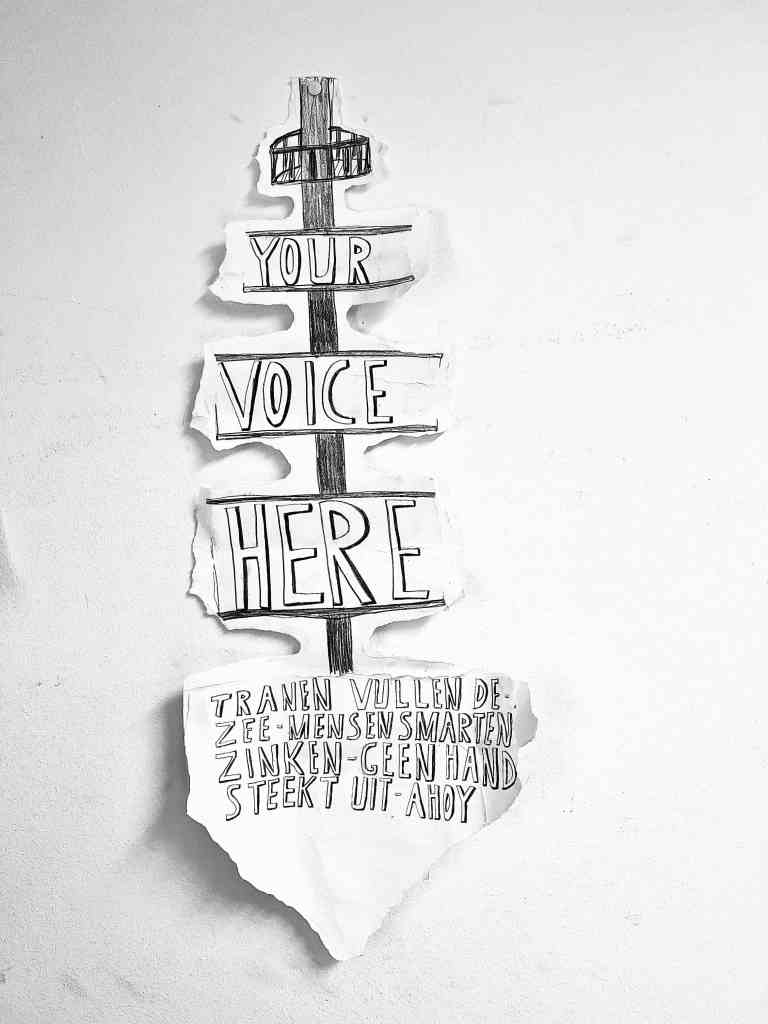 YOUR
VOICE
HERE
TRANEN VULLEN DE-
ZEE-MENSENSMARTEN
ZINKEN-GEEN HAND
STEEKT UIT-AHOY